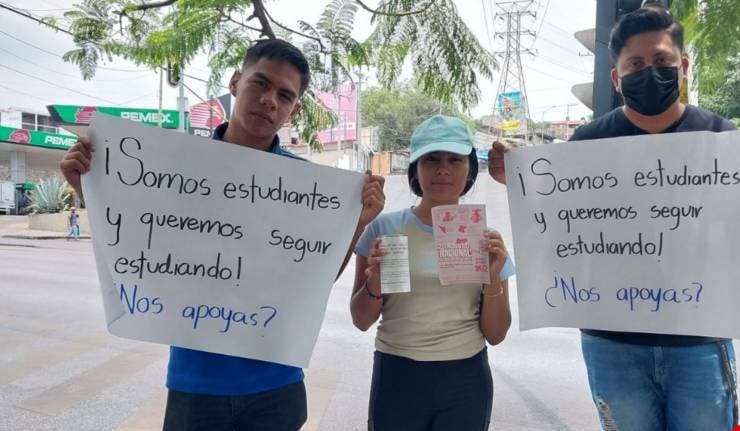 PEMEX
PEMEX
PEM
¡Somos estudiantes
y queremos seguir
estudiando!
Nos apoyas?
NACIONAL
¡Somos estudiantes
y queremos seguir
estudiando!
¿Nos apoyas?